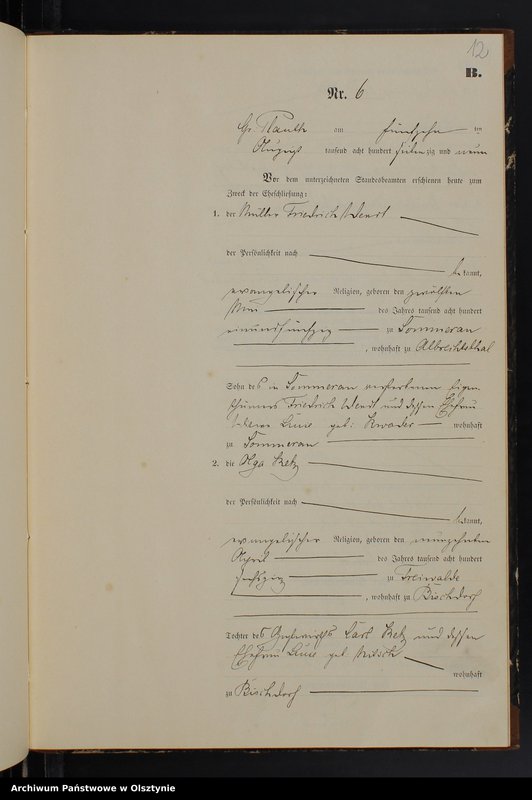 12
B.
Nr. 6
Gr. Plauth am fünfzehn ten
August tausend acht hundert siebenzig und neun
Vor dem unterzeichneten Standesbeamten erschienen heute zum
Zweck der Eheschließung:
1. der Müller Friedrich Wendt
der Persönlichkeit nach
bekannt,
evangelischer Religion, geboren den zwölften
Mai des Jahres tausend acht hundert
einundfünfzig zu Sommerau
, wohnhaft zu Albrechtsthal
Sohn des in Sommerau verstorbenen Eigen-
thümers Friedrich Wendt und dessen Ehefrau
Luise geb: wohnhaft
zu Sommerau
2. die Olga
der Persönlichkeit nach
bekannt,
evangelischer Religion, geboren den neunzehnten
April des Jahres tausend acht hundert
sechszig zu Freiwalde
, wohnhaft zu Bischdorf
Tochter des Gastwirths Carl und dessen
Ehefrau Luise geb.
wohnhaft
zu Bischdorf
Archiwum Państwowe w Olsztynie